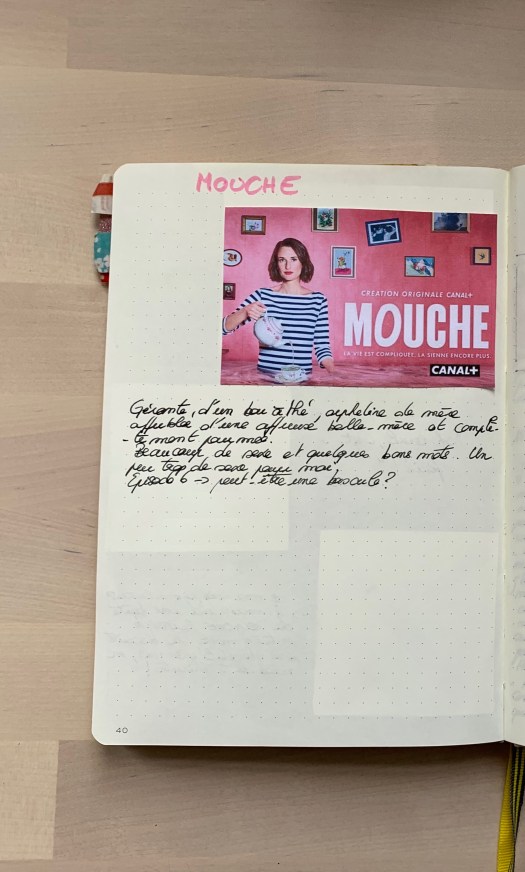 MOUCHE
CRÉATION ORIGINALE CANAL+
MOUCHE
LA VIE EST COMPLIQUÉE, LA SIENNE ENCORE PLUS.
CANAL+
Gérante, d'un bar à thé orpheline de mère
affublée d'une affreuse belle-mère et complè-
-tement paumée.
Beaucoup de sexe et quelques bons mots. Un
peu trop de sexe pour moi,
Episode 6 → peut-être une bascule ?
40